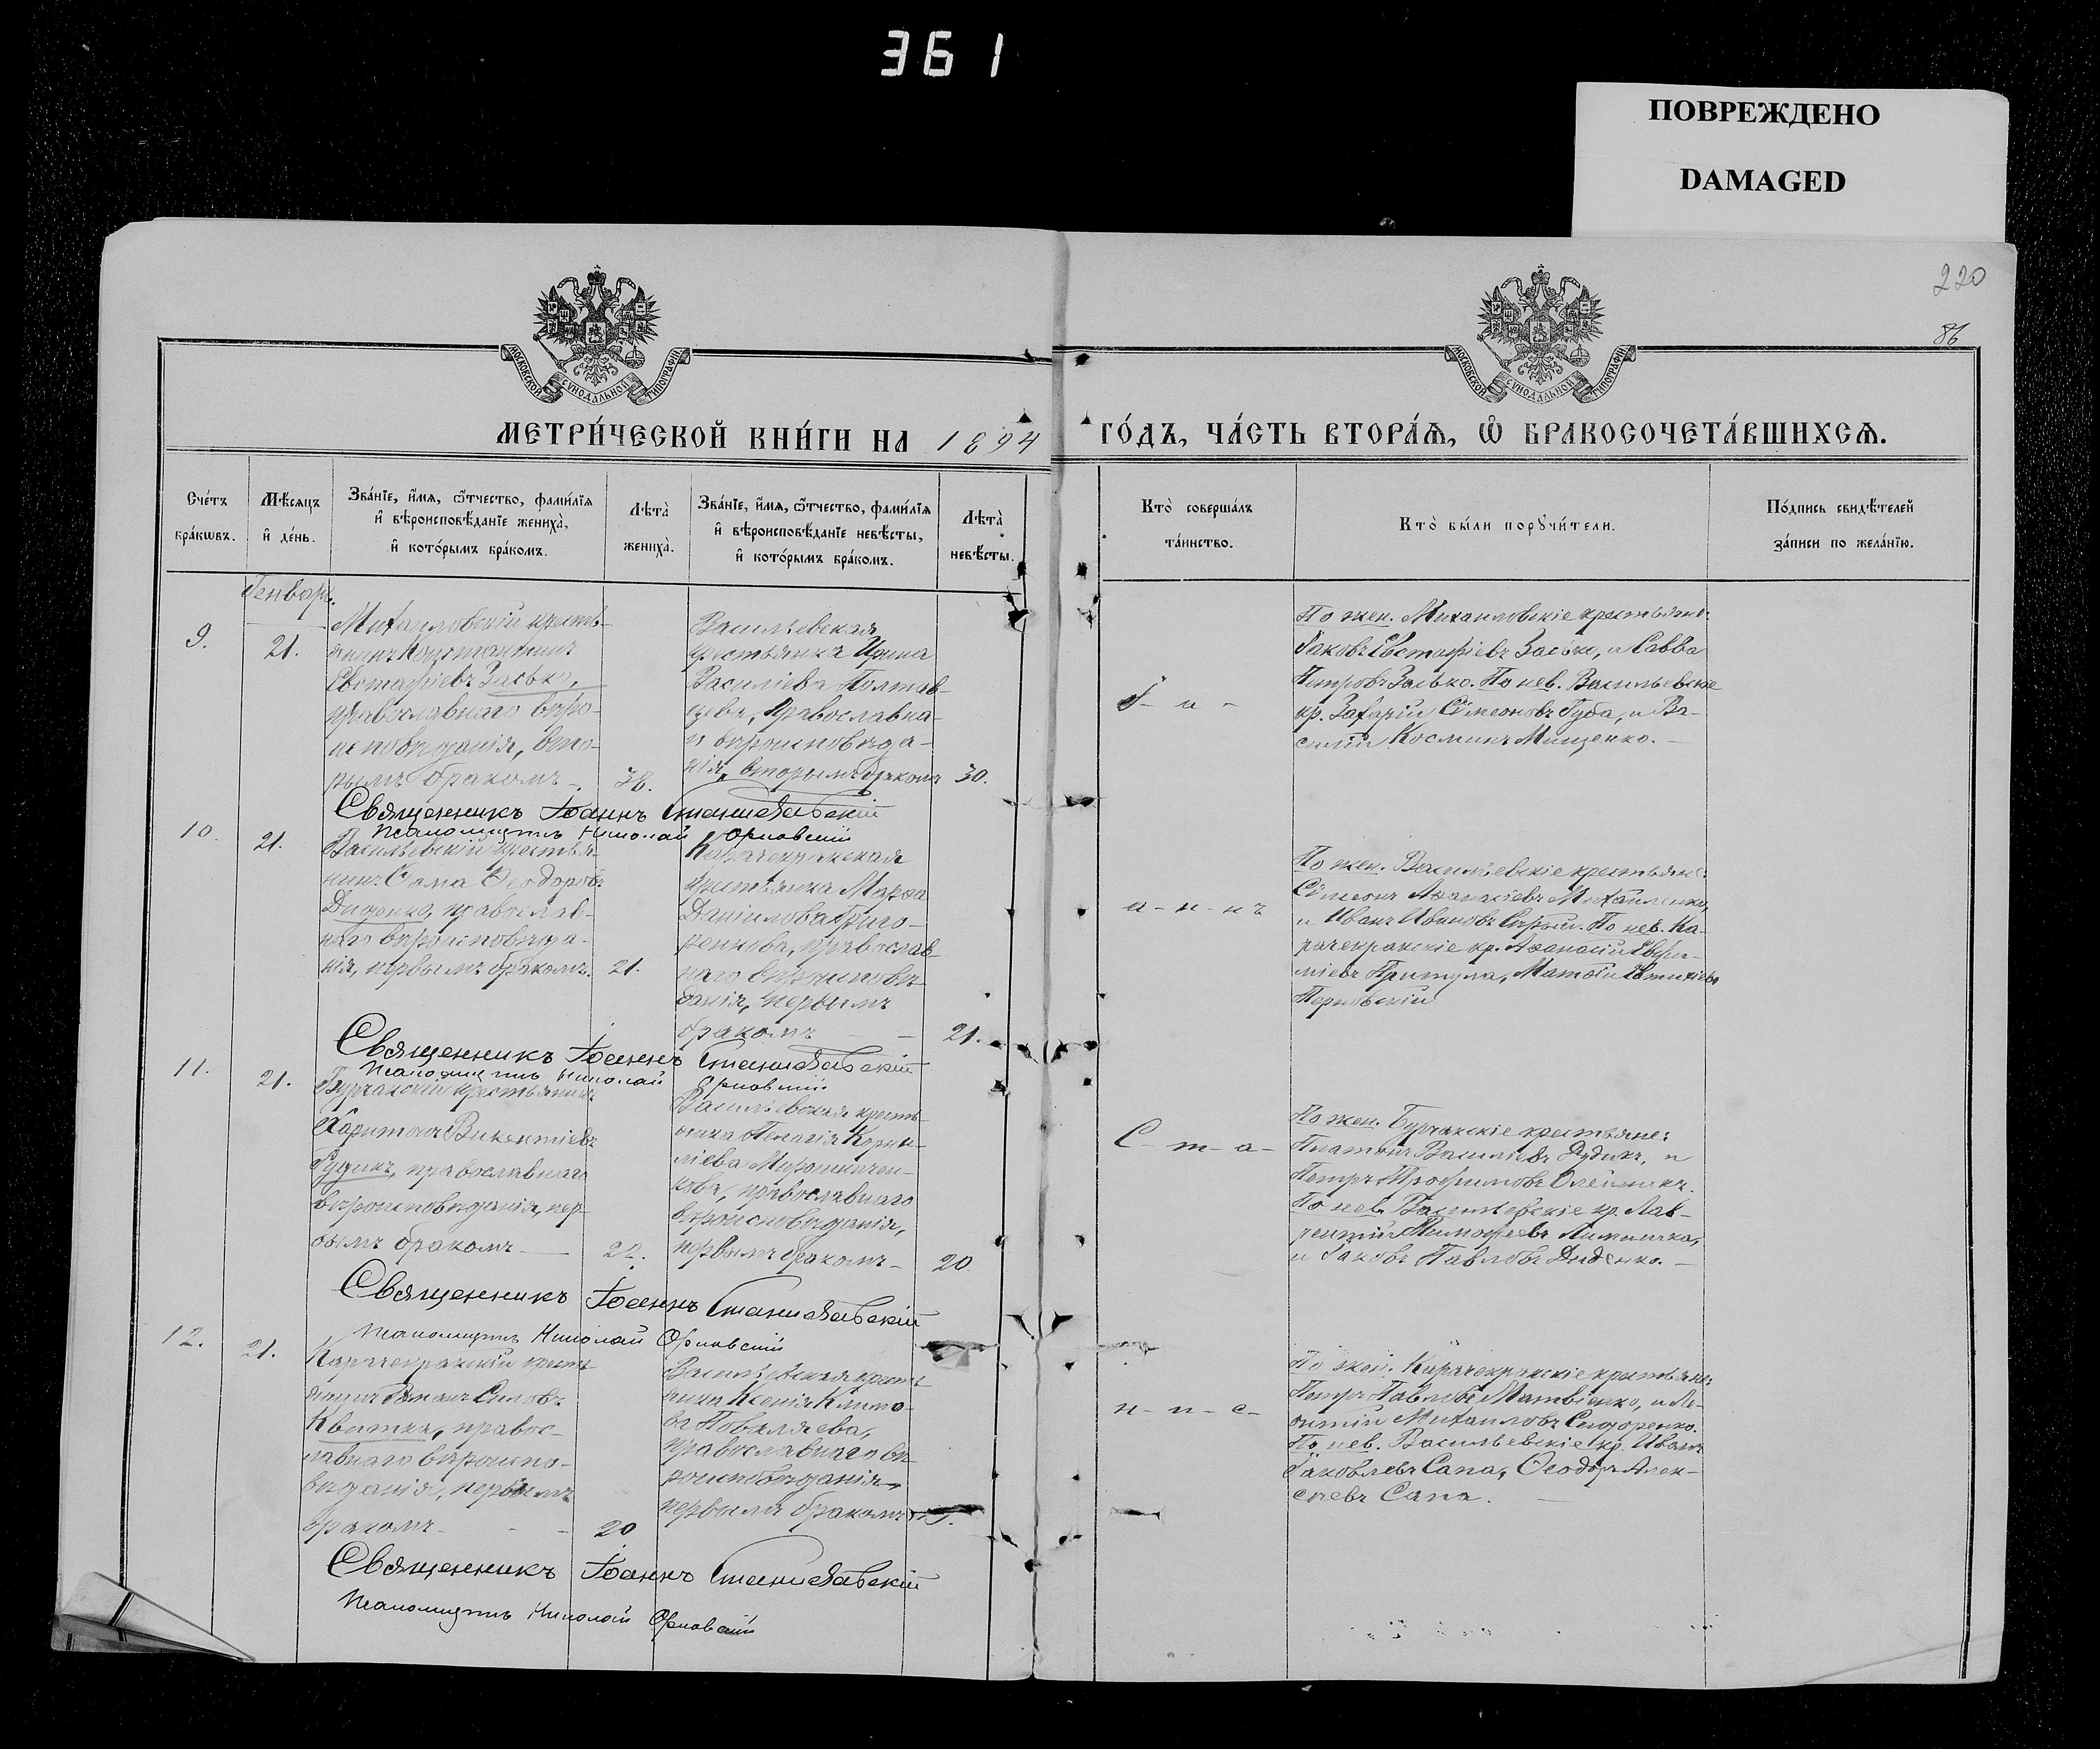 361
ПОВРЕЖДЕНО
DAMAGED
220
86
МОСКОВСКОЙ СУНОДАЛЬНОЙ ТИПОГРАФІИ
МОСКОВСКОЙ СУНОДАЛЬНОЙ ТИПОГРАФІИ
МЕТРИ́ЧЕСКОЙ КНИ́ГИ НА 1894
ГО́ДЪ, ЧА́СТЬ ВТОРА́Ѧ, Ѿ БРАКОСОЧЕТА́ВШИХСѦ.
Сче́тъ
бра́кѡвъ.
Мѣ́сѧцъ
и҆ де́нь.
Зва́нїе, и҆́мѧ, ѻ҆́тчество, фами́лїѧ
и҆ вѣроисповѣ́данїе жениха̀,
и҆ кото́рымъ бра́комъ.
Лѣта̀
жениха̀.
Зва́нїе, и҆́мѧ, ѻ҆́тчество, фами́лїѧ
и҆ вѣроисповѣ́данїе невѣ́сты,
и҆ кото́рымъ бра́комъ.
Лѣта̀
невѣ́сты.
Кто̀ соверша́лъ
та́инство.
Кто̀ бы́ли порꙋчи́тели.
По́дпись свидѣ́телей
за́писи по жела́нїю.
Генварь.
9.
21.
Михайловскій кресть-
янинъ Константинъ
Евстафіевъ Засько,
православнаго вѣро-
исповѣданія, вто-
рымъ бракомъ
Васильевская
крестьянка Ирина
Василіева Полтав-
цева, православна-
го вѣроисповѣда-
нія, вторымъ бракомъ
30.
І-о-
По жен. Михаиловскіе крестьяне:
Іаковъ Евстафіевъ Засько, и Савва
Петровъ Засько. По нев. Васильевскіе
кр. Захарій Сѵмеоновъ Губа, и Ва-
силій Косминъ Мищенко.
Священникъ Іоаннъ Станиславскій
Псаломщикъ Николай Орловскій
10.
21.
Васильевскій крестья-
нинъ Ѳома Ѳеодоровъ
Диденко, православ-
наго вѣроисповѣда-
нія, первымъ бракомъ.
21.
Карачекракская
крестьянка Марѳа
Даніилова Григо-
ренкова, православ-
наго вѣроисповѣ-
данія, первымъ
бракомъ
21.
а-н-нъ
По жен. Васильевскіе крестьяне:
Сѵмеонъ Аѳанасіевъ Михайленко,
и Иванъ Ивановъ Сѣрый. По нев. Ка-
рачекракскіе кр. Аѳанасій Евфи-
міевъ Притула, Матѳій Евтихіевъ
Священникъ Іоаннъ Станиславскій
Псаломщикъ Николай Орловскій
11.
21.
Бурчакскій крестьянинъ
Харитонъ Викентіевъ
православнаго
вѣроисповѣданія, пер-
вымъ бракомъ
22.
Васильевская кресть-
янка Пелагія Корни-
ліева Мирошничен-
кова, православнаго
вѣроисповѣданія,
первымъ бракомъ
20
С-т-а-
По жен. Бурчакскіе крестьяне:
Платонъ Василіевъ Дудикъ, и
Петръ Трофимовъ Олейникъ.
По нев. Васильевскіе кр. Лав-
рентій Тимофеевъ
и Іаковъ Павловъ Диденко.
Священникъ Іоаннъ Станиславскій
Псаломщикъ Николай Орловскій
12.
21.
Карачекракскій кресть-
янинъ Романъ Силовъ
Квитка, правос-
лавнаго вѣроиспо-
вѣданія, первымъ
бракомъ
20
Васильевская кресть-
янка Ксенія Климо-
ва Повиляева,
православнаго вѣ-
роисповѣданія,
первымъ бракомъ
н-и-с-
По жен. Карачекракскіе крестьяне:
Петръ Павловъ Матвіенко, и Ле-
онтій Михаиловъ Сидоренко.
По нев. Васильевскіе кр. Иванъ
Іаковлевъ Сапа, Ѳеодоръ Алек-
сѣевъ Сапа.
Священникъ Іоаннъ Станиславскій
Псаломщикъ Николай Орловскій